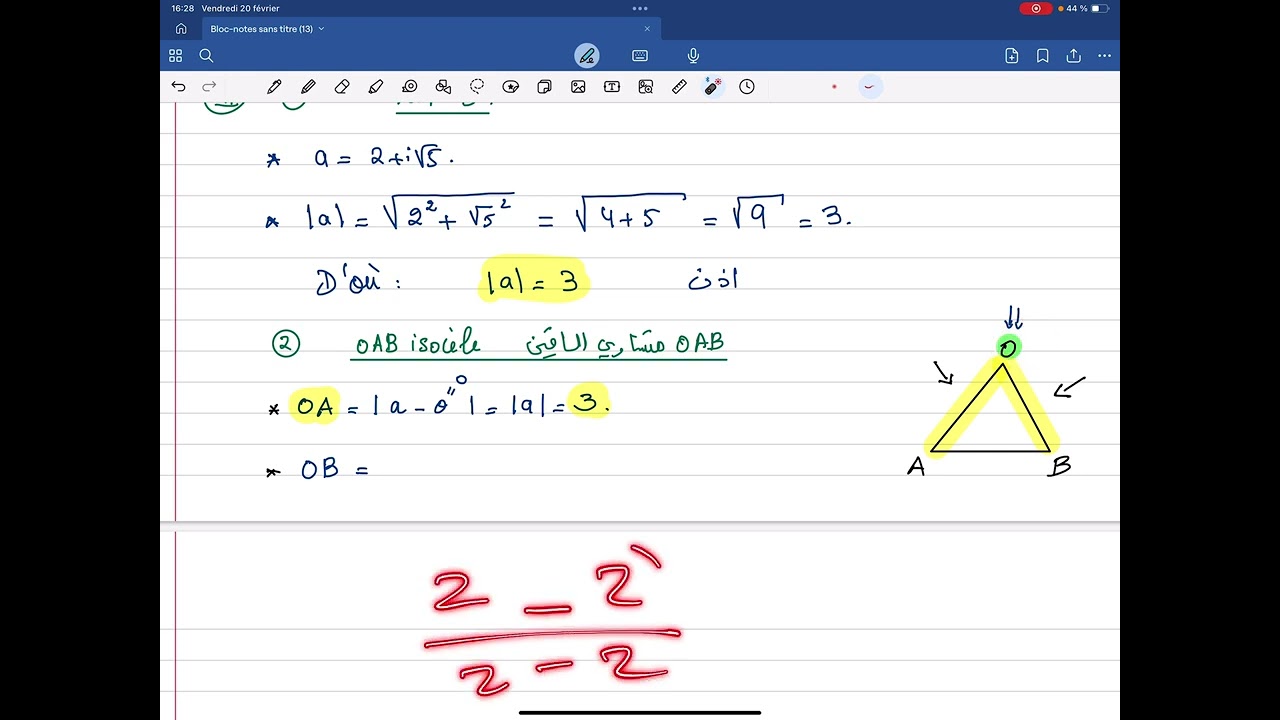 16:28 Vendredi 20 février
44 %
Bloc-notes sans titre (13)
* a = 2+i√5.
* |a| = √(2² + √5²) = √(4+5) = √9 = 3.
D'où : |a| = 3 اذن
② OAB isocèle OAB متساوي الساقين
* OA = | a - 0 | = |a| = 3.
* OB =
O
A B
2 - 2
2 - 2